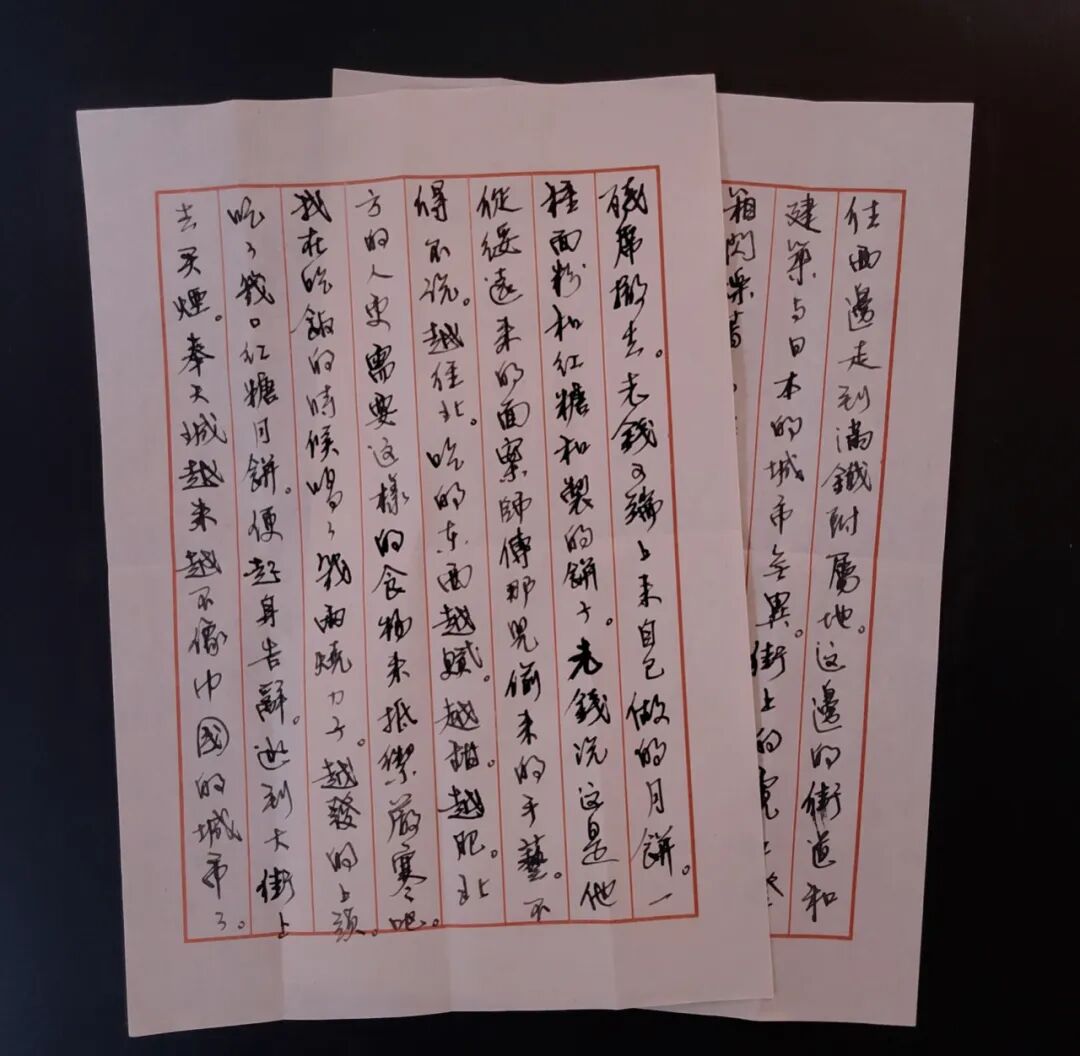 残席撤去。老錢又端上来自己做的月餅。一
種面粉和红糖和製的餅子。老錢说这是他
從綏遠来的面案師傅那兒偷来的手藝。不
得不说。越往北。吃的东西越膩。越甜。越肥。北
方的人更需要这樣的食物来抵禦嚴寒吧。
我在吃飯的時候喝了幾兩燒刀子。越發的上頭。
吃了幾口红糖月餅。便起身告辭。逃到大街上
去买煙。奉天城越来越不像中國的城市了。
往西邊走到滿鐵附屬地。这邊的街道和
建築与日本的城市無異。街上的霓虹燈
箱閃爍著